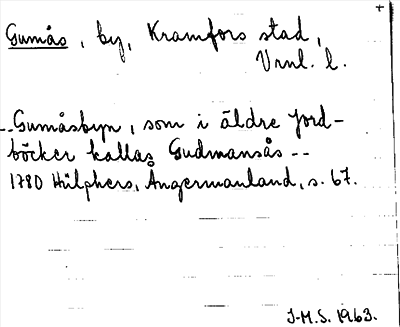 Gumås, by, Kramfors stad,
Vrnl. l.
--Gumåsbyn, som i äldre Jord-
böcker kallas Gudmansås --
1780 Hülphers, Ångermanland, s. 67.
J.M.S. 1963.